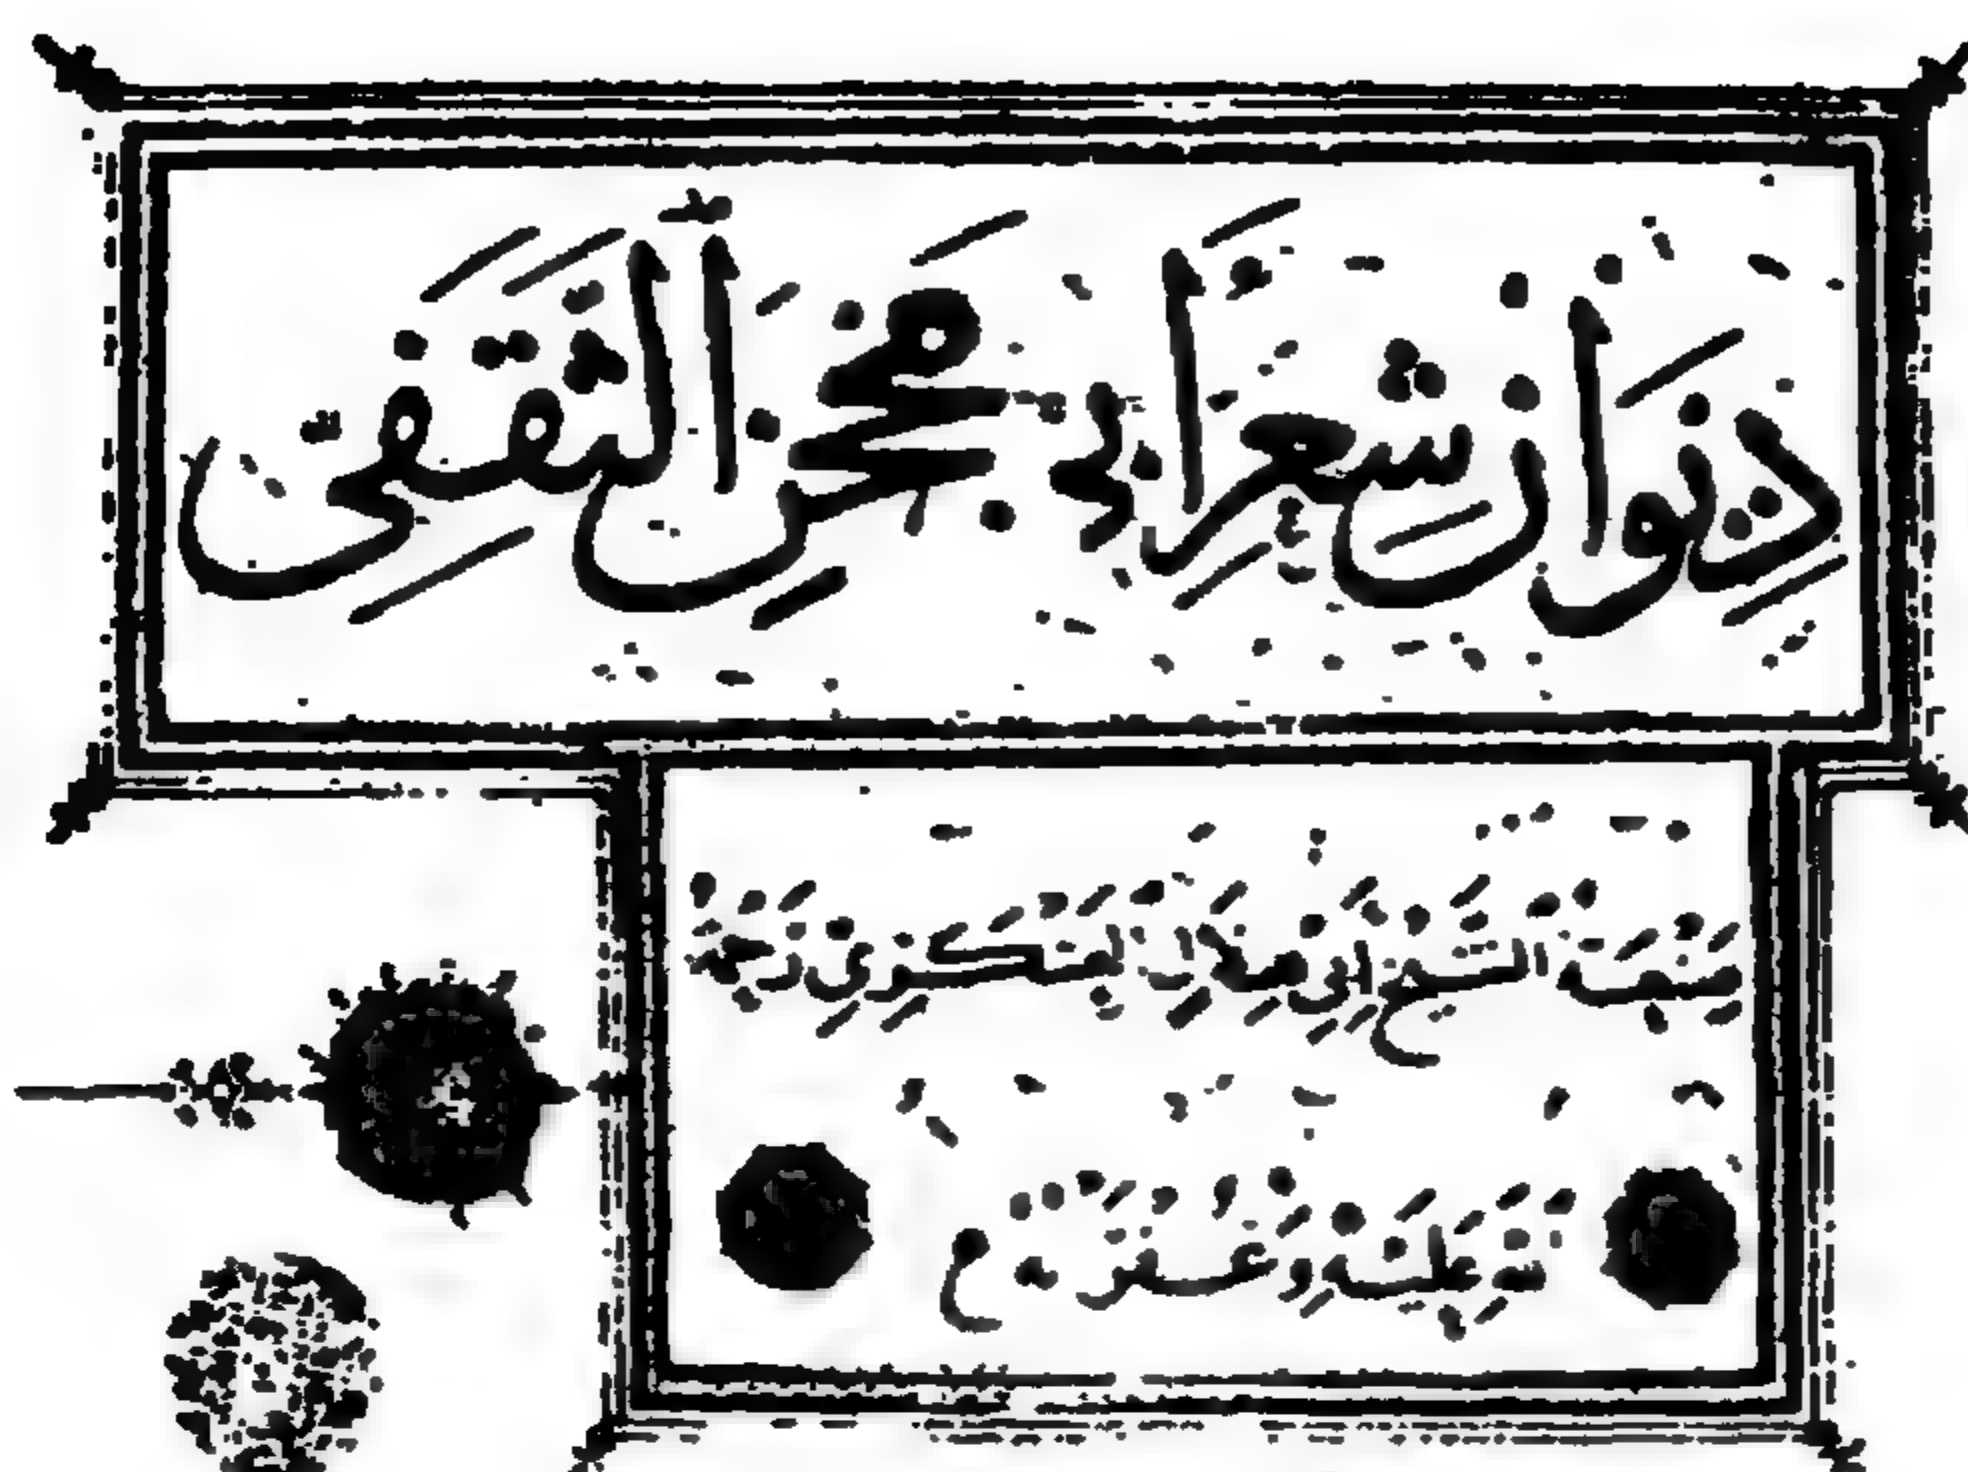 دِيْوَانُ شِعْرِ أَبِي مِحْجَنٍ الثَّقَفِي
صَنْعَة الشَّيْخِ أَبِي هِلَالٍ العَسْكَرِيِّ رَحْمَةُ
اللهِ عَلَيْهِ وَ